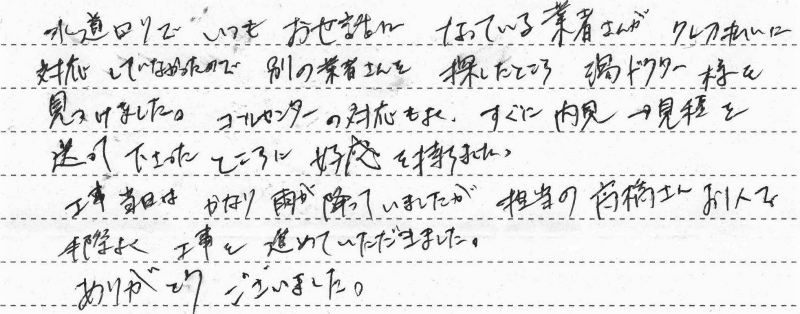 水道回りで いつも お世話に なっている業者さんが クレカ払いに
対応 していなかったので 別の業者さんを 探したところ ドクター 様を
見つけました。 コールセンターの対応もよく、すぐに 内見→見積を
送って下さった ところに 好感 を持ちました。
工事当日は かなり 雨が 降っていましたが 担当の 高橋さん お1人で
手際よく 工事を 進めていただきました。
ありがとう ございました。